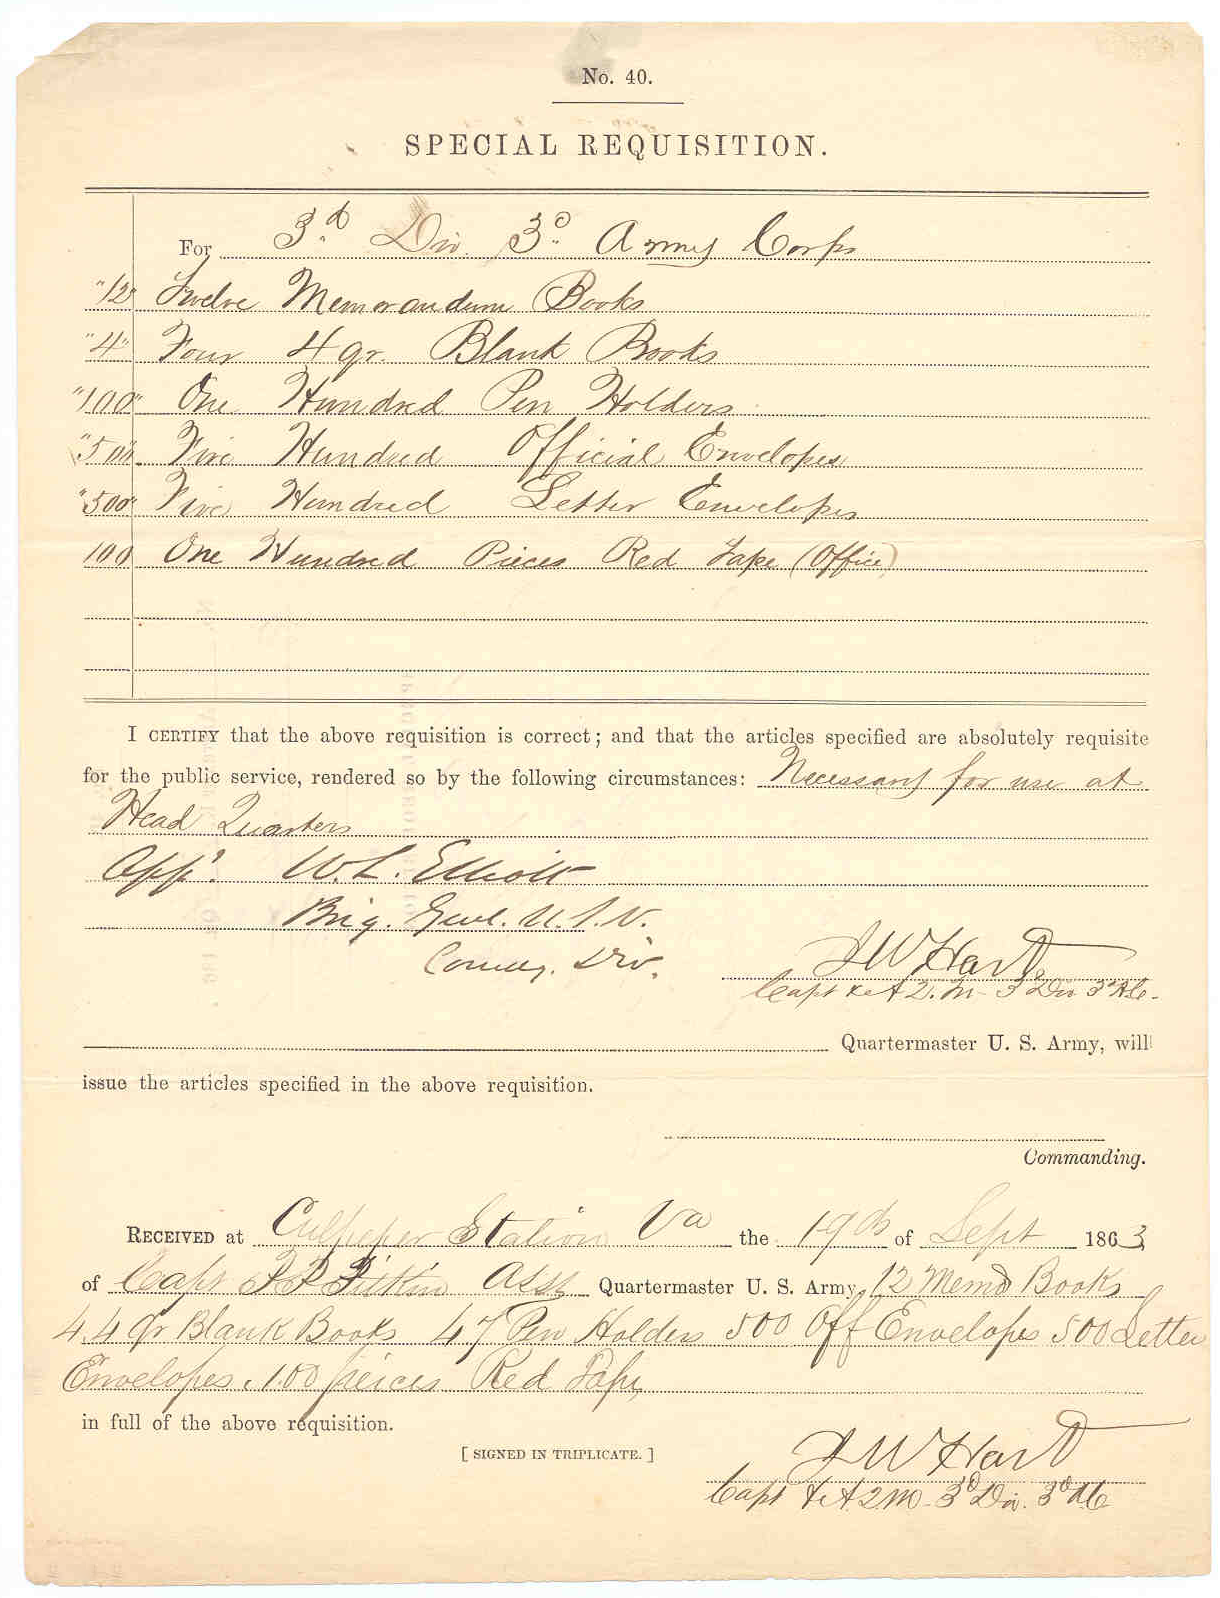 No. 40.
SPECIAL REQUISITION.
For 3.d Div. 3d. Army Corps
"12" Twelve Memorandum Books
"4" Four 4 qr. Blank Books
"100" One Hundred Pen Holders
"500" Five Hundred Official Envelopes
"500" Five Hundred Letter Envelopes
100 One Hundred Pieces Red Tape (Office)
I CERTIFY that the above requisition is correct; and that the articles specified are absolutely requisite
for the public service, rendered so by the following circumstances: Necessary for use at
Head Quarters
App'. W. L. Elliott
Brig. Genl. U.S.V.
Comdg. Div.
J W Hart
Capt & A Q. M- 3 Div 3d A C-
Quartermaster U. S. Army, will
issue the articles specified in the above requisition.
Commanding.
RECEIVED at Culpeper Station Va the 19th of Sept 1863
of Capt P P Pitkin Asst Quartermaster U. S. Army, 12 Memo Books
4. 4 qr Blank Books 47 Pen Holders 500 Off Envelopes 500 Letter
Envelopes, 100 peices Red Tape,
in full of the above requisition.
[ SIGNED IN TRIPLICATE. ]
J W Hart
Capt & A Q M- 3d Div. 3d A C